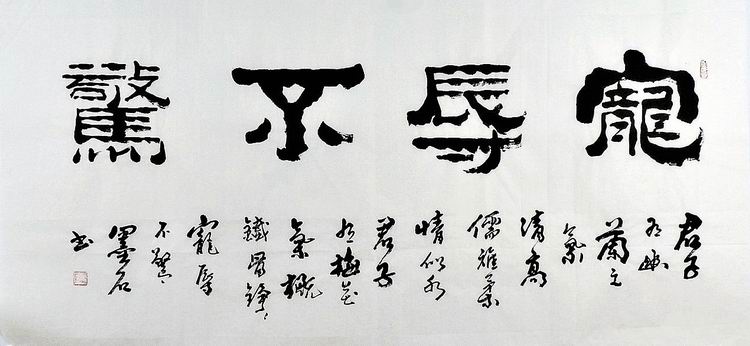 寵辱不驚
君子
有幽
蘭之
氣
清高
儒雅柔
情似水
君子
有梅花
氣概
鐵骨錚々
寵辱
不驚
墨石
书